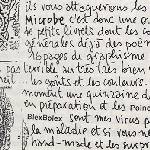 ils vous attaquerons les
Microbe c'est donc une c
de petits livrets dont les co
générales déjà des poè
les pages du graphisme
pas
terrible ou très très bien
les goûts et les couleurs
moment une quinzaine d
en préparation et les poinç
BlexBolex sont mes virus p
la maladie et si vous ne
hand-made et les